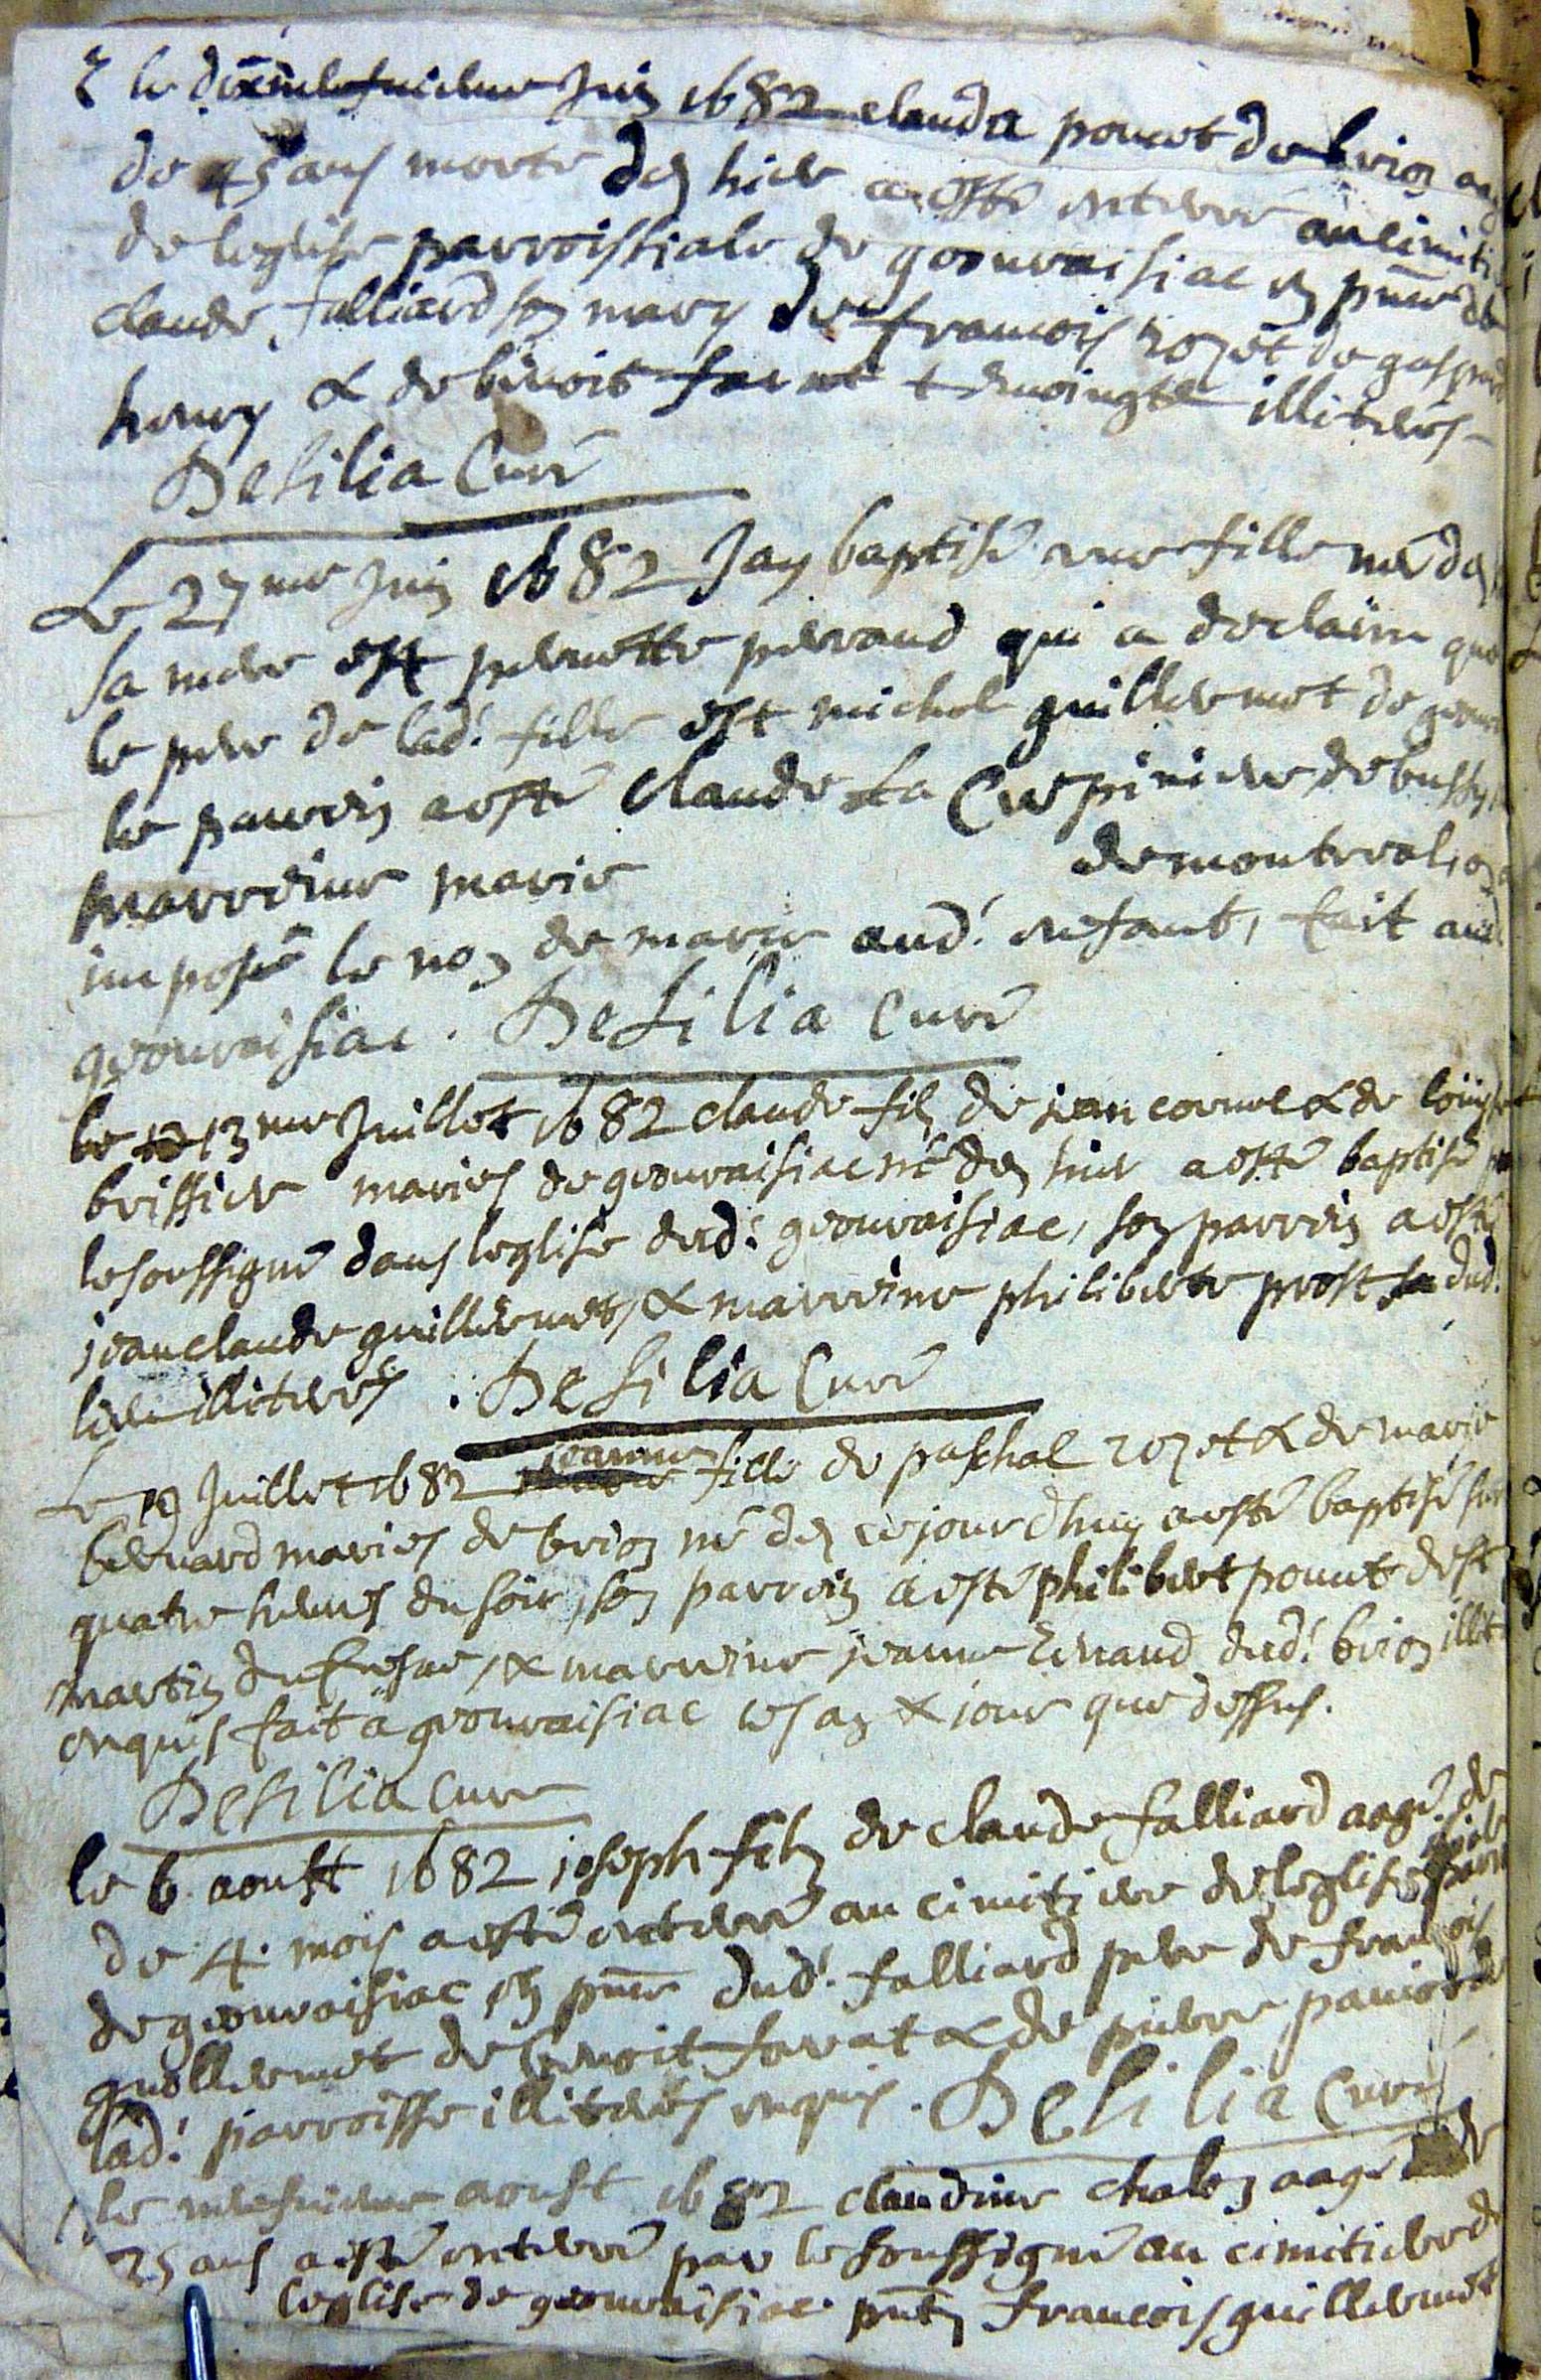 le Juin 1682 clauda poncet de brion aag
de 45 ans morte des hier a esté enterré au cimiti
de leglise parroissiale de geouvraisiac en pnce de
claude falliard son mary de francois rozet de gaspard
henry & de benoit temoingts illiterés
DeSilia Curé
Le 27me Juin 1682 Jay baptisé une fille née des
sa mere est pernette peraud qui a declairé que
le pere de lad. fille est michel guillermet de geouv
le parrein a esté claude la Crespiniere de bussy
marreine marie de montreal, on a
imposé le non de marie aud. enfant, fait aud
geouvraisiac. DeSilia Curé
le 13me Juillet 1682 claude filz de jean cornu & de loüyse
brissier mariés de geouvraisiac né des hier a esté baptisé p
le soussigné dans leglise dud. geouvraisiac, son parrein a esté
jean claude guillermet, & marreine philiberte prost dud.
lieu illiterés. DeSilia Curé
Le 19 Juillet 1682 jeanne fille de paschal rozet & de marie
bernard mariés de brion né des ce jourdhuy a esté baptisé sur
quatre heures du soir, son parrein a esté philibert ponnet de st
martin du fresne, & marreine jeanne Evraud dud. brion illit
enquis fait a geouvraisiac les an & jour que dessus.
DeSilia curé
le 6 aoust 1682 joseph filz de claude falliard aagé de
de 4. mois a esté enterré au cimitiere de leglise parro
de geouvraisiac en pnce dud. falliard pere de francois
guollermet de benoit favat & de pierre de
lad. parroisse illiterés enquis. DeSilia Curé
le aoust 1682 claudine chalon aagé de
25 ans a esté enterré par le soussigné au cimitiere de
leglise de geouvraisiac pnts francois guillermet